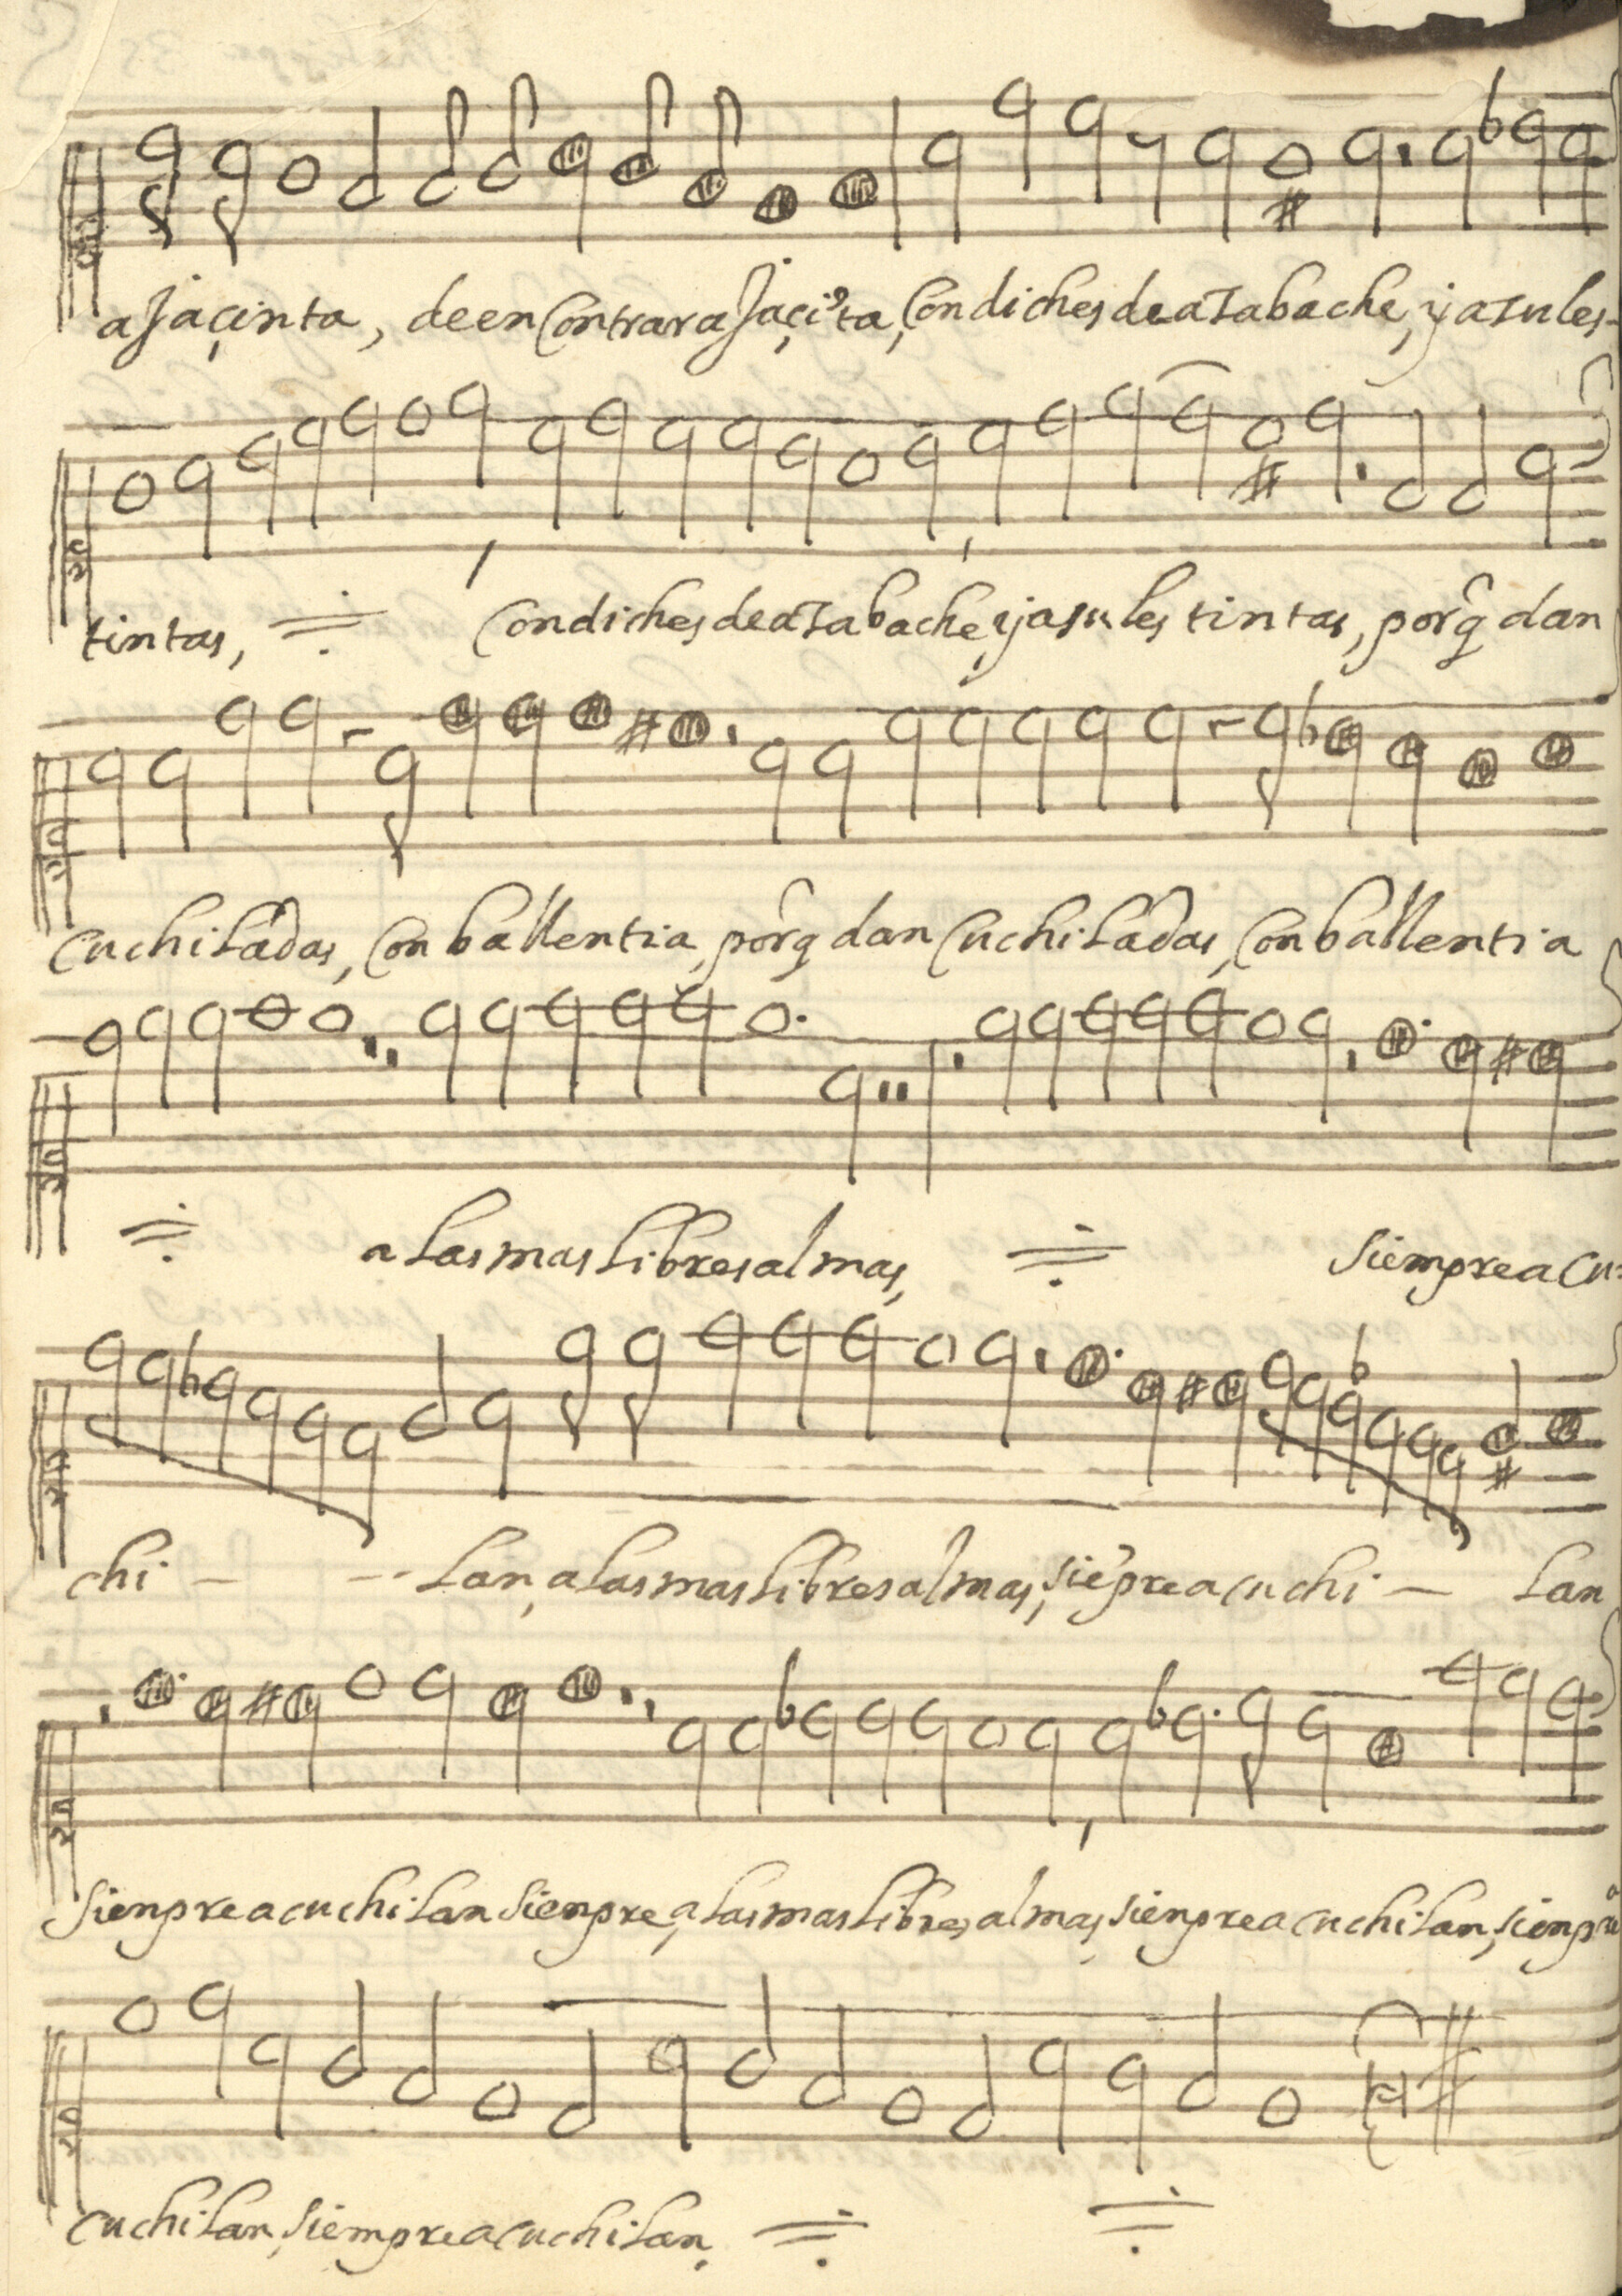 a Jaçinta, de encontrar a Jaçĩta, con diches de aʒabache, y aʒules
tintas, con diches de aʒabache, y aʒules tintas, porq̃ dan
cuchiladas, con ballentia, porq̃ dan cuchiladas, con ballentia
a las mas libres almas, siempre a cu-
chi - - - lan, a las mas libres almas, siẽpre a cuchi - lan
sienpre a cuchilan sienpre, a las mas libres almas, sienpre a cuchilan, sienpre
cuchilan, siempre a cuchilan,